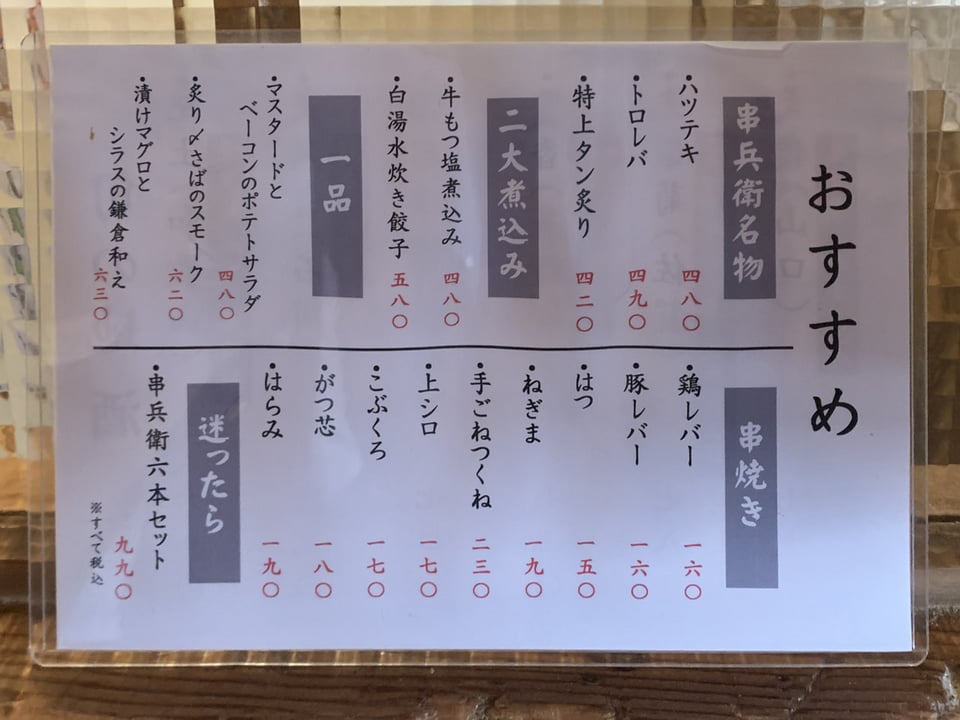 おすすめ
串兵衛名物
・ハツテキ
四八〇
・トロレバ
四九〇
・特上タン炙り
四二〇
二大煮込み
・牛もつ塩煮込み
四八〇
・白湯水炊き餃子
五八〇
一品
・マスタードと
ベーコンのポテトサラダ
四八〇
・炙り〆さばのスモーク
六二〇
・漬けマグロと
シラスの鎌倉和え
六三〇
串焼き
・鶏レバー
一六〇
・豚レバー
一六〇
・はつ
一五〇
・ねぎま
一九〇
・手ごねつくね
二三〇
・上シロ
一七〇
・こぶくろ
一七〇
・がつ芯
一八〇
・はらみ
一九〇
迷ったら
・串兵衛六本セット
九九〇
※すべて税込